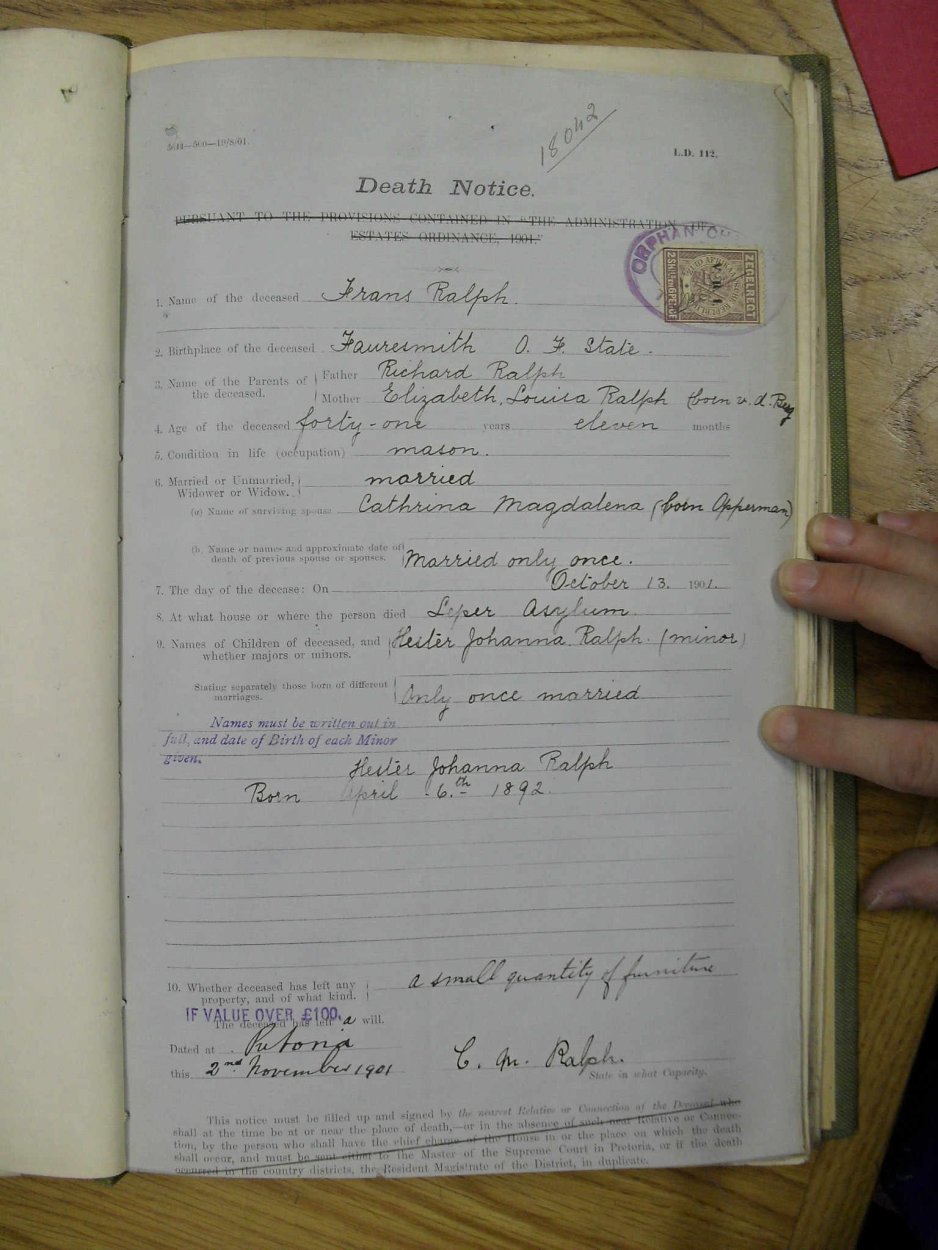 18042
5644—500—19/8/01.
L.D. 112.
Death Notice.
PURSUANT TO THE PROVISIONS CONTAINED IN "THE ADMINISTRATION OF
ESTATES ORDINANCE, 1901."
ORPHAN CH
ZEGELREGT
ZUID AFRIKAANSCHE REPUBLIEK
V.R.I.
2 SHILL. EN 6 PENCE
1. Name of the deceased Frans Ralph.
2. Birthplace of the deceased Fauresmith O. F. State.
3. Name of the Parents of the deceased. Father Richard Ralph
Mother Elizabeth, Louisa Ralph (born v. d. Berg
4. Age of the deceased forty-one years eleven months
5. Condition in life (occupation) mason.
6. Married or Unmarried, Widower or Widow. married
(a) Name of surviving spouse Cathrina Magdalena (born Opperman)
(b. Name or names and approximate date of
death of previous spouse or spouses. Married only once.
7. The day of the decease: On October 13. 1901.
8. At what house or where the person died Leper Asylum.
9. Names of Children of deceased, and
whether majors or minors. Hester Johanna Ralph. (minor)
Stating separately those born of different
marriages. Only once married
Names must be written out in
full, and date of Birth of each Minor
given.
Hester Johanna Ralph
Born April 6.th 1892.
10. Whether deceased has left any
property, and of what kind. a small quantity of furniture
IF VALUE OVER £100.
The deceased has left a will.
Dated at Pretoria
this 2nd November 1901 C. M. Ralph.
State in what Capacity.
This notice must be filled up and signed by the nearest Relative or Connection of the Deceased who
shall at the time be at or near the place of death,—or in the absence of such near Relative or Connec-
tion, by the person who shall have the chief charge of the House in or the place on which the death
shall occur, and must be sent either to the Master of the Supreme Court in Pretoria, or if the death
occurred in the country districts, the Resident Magistrate of the District, in duplicate.